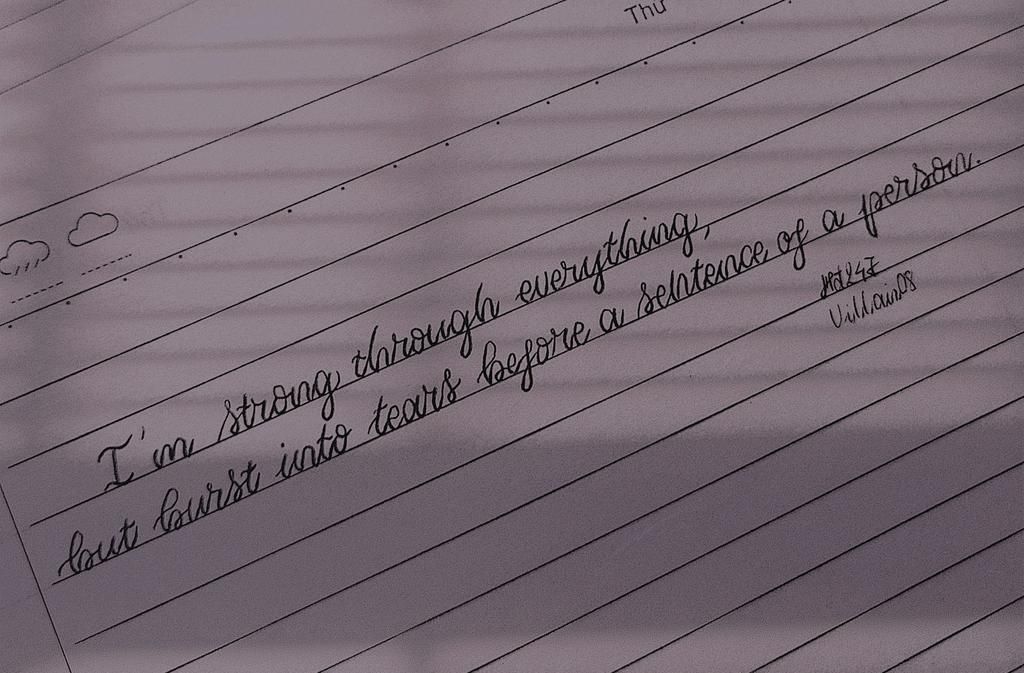 Thu
I'm strong through everything,
but burst into tears before a sentence of a person.
Villain08